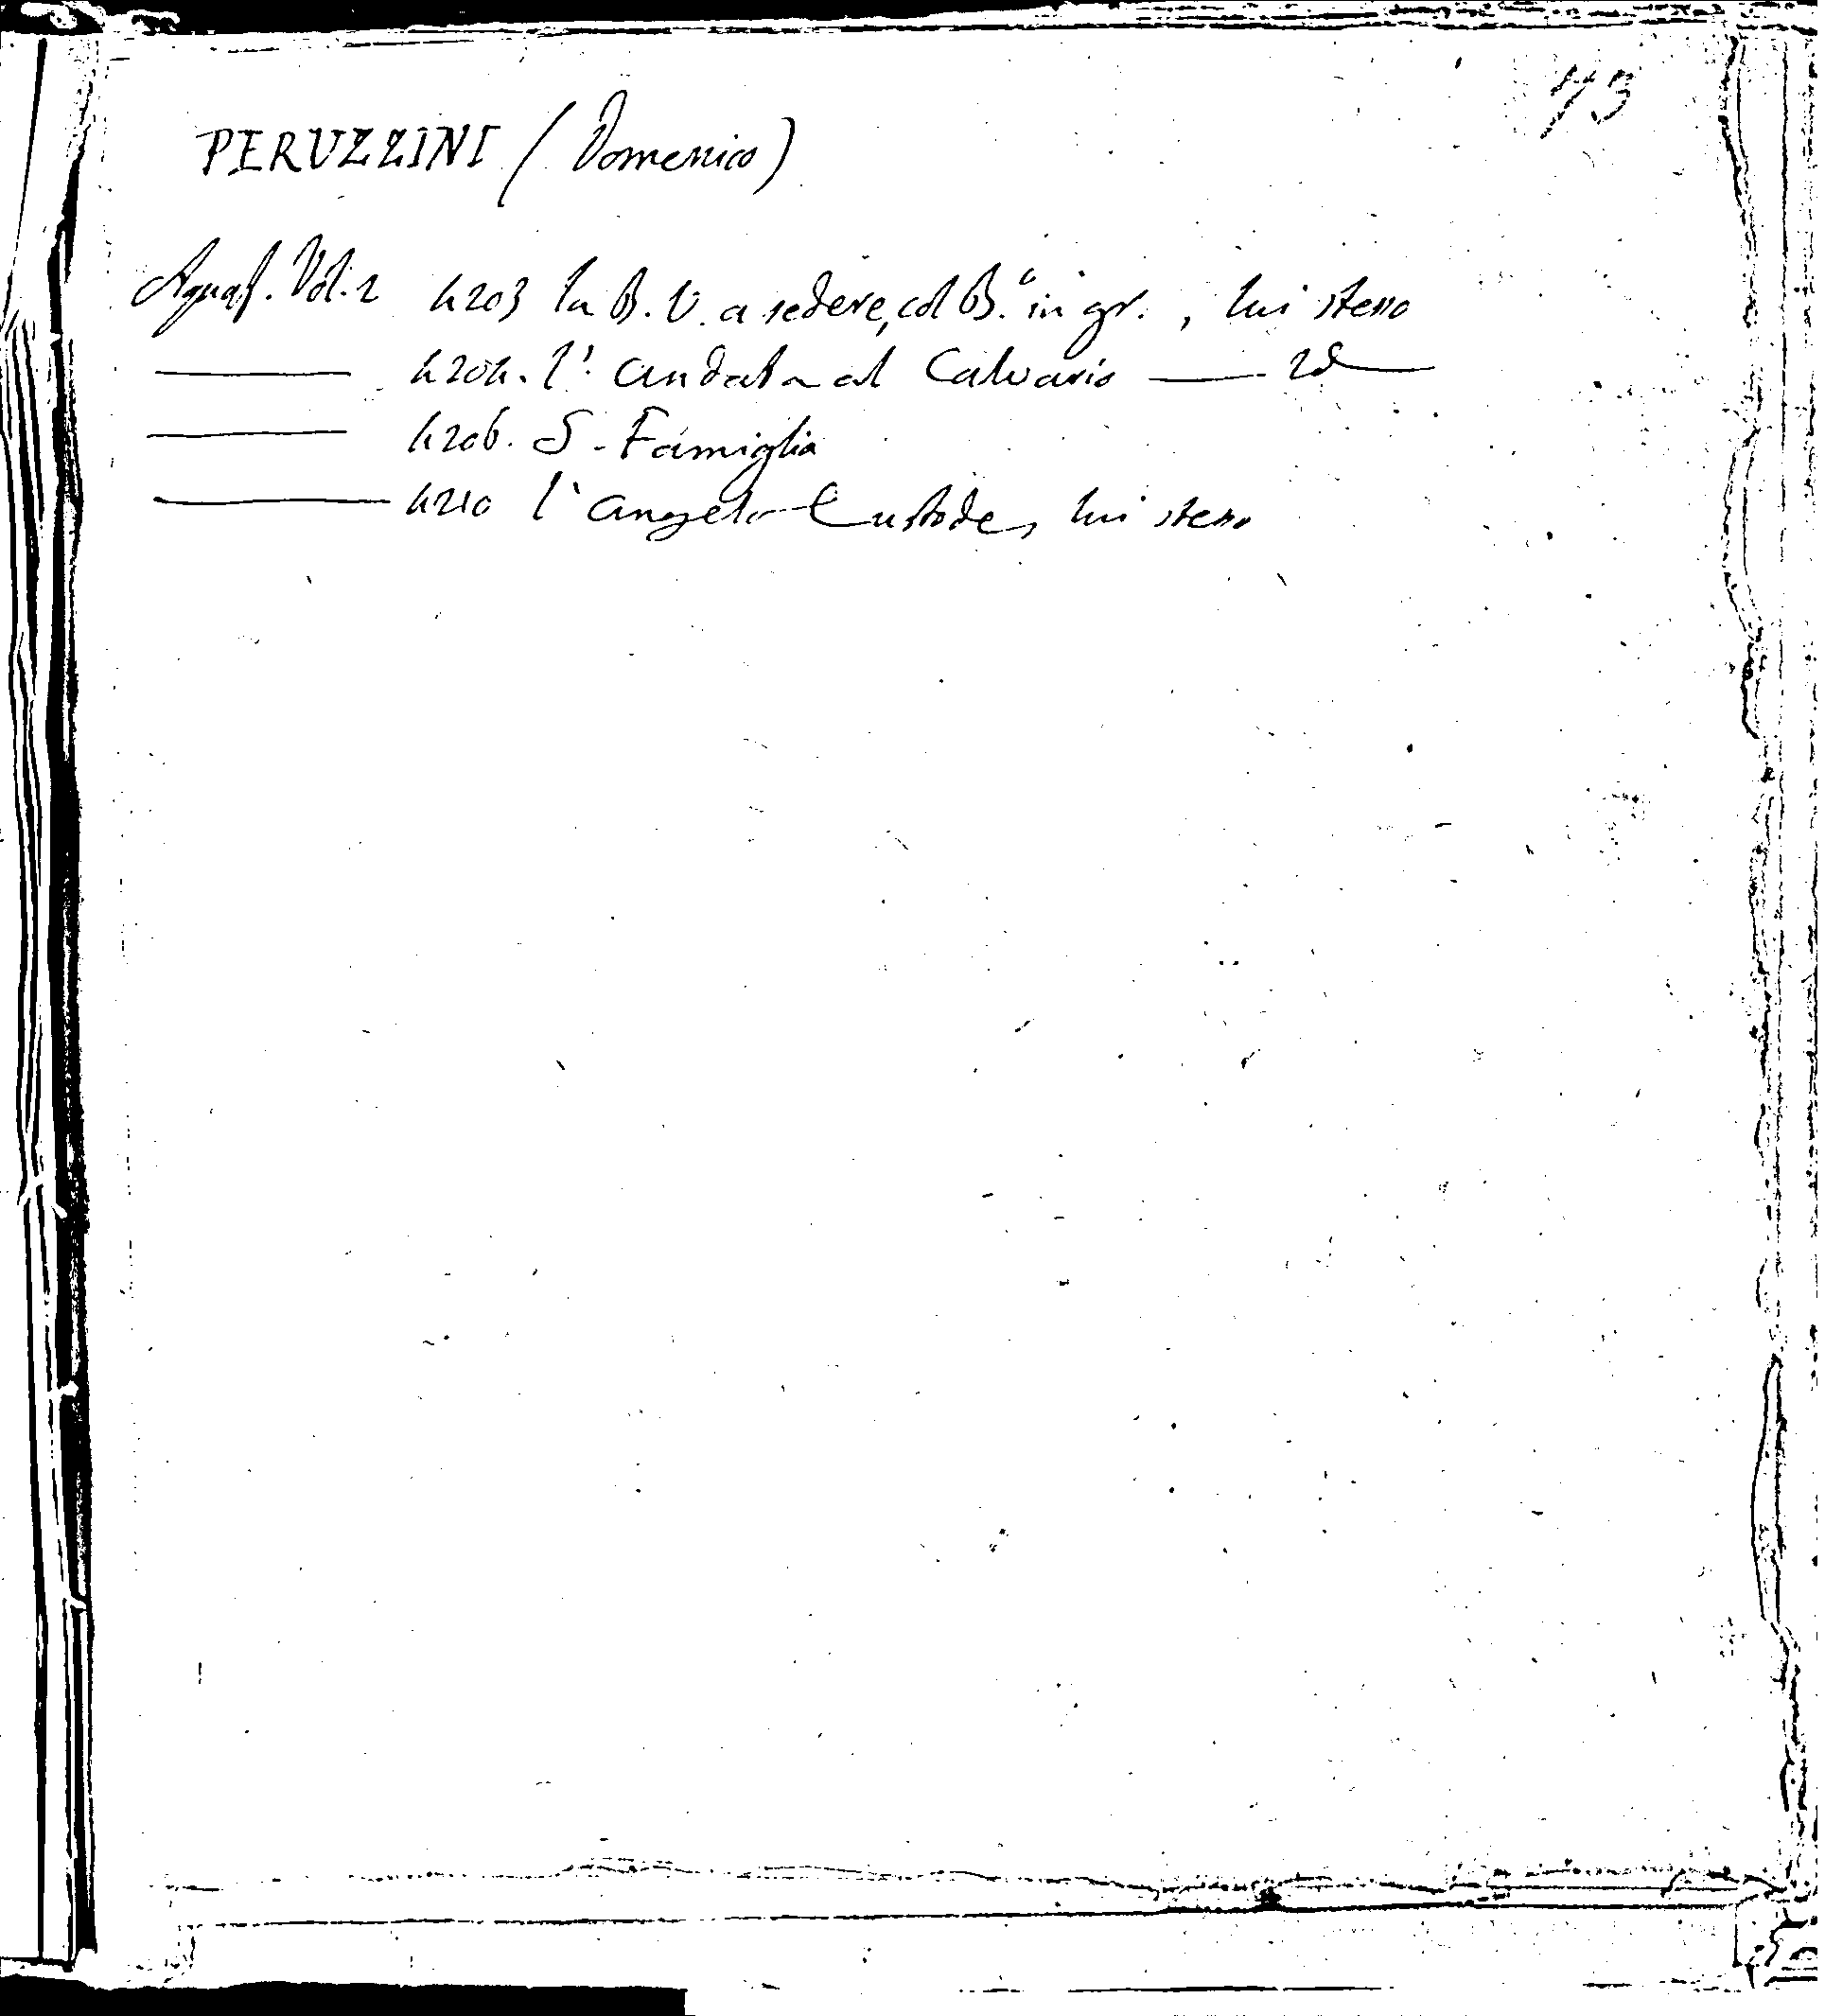 73
PERUZZINI (Domenico)
Aquaf. Vol. 2 4203 la B. V. a sedere, col B.º in gr. , lui stesso
4204. l' andata al Calvario —— id——
4206. S. Famiglia
4210 l' Angelo Custode, lui stesso